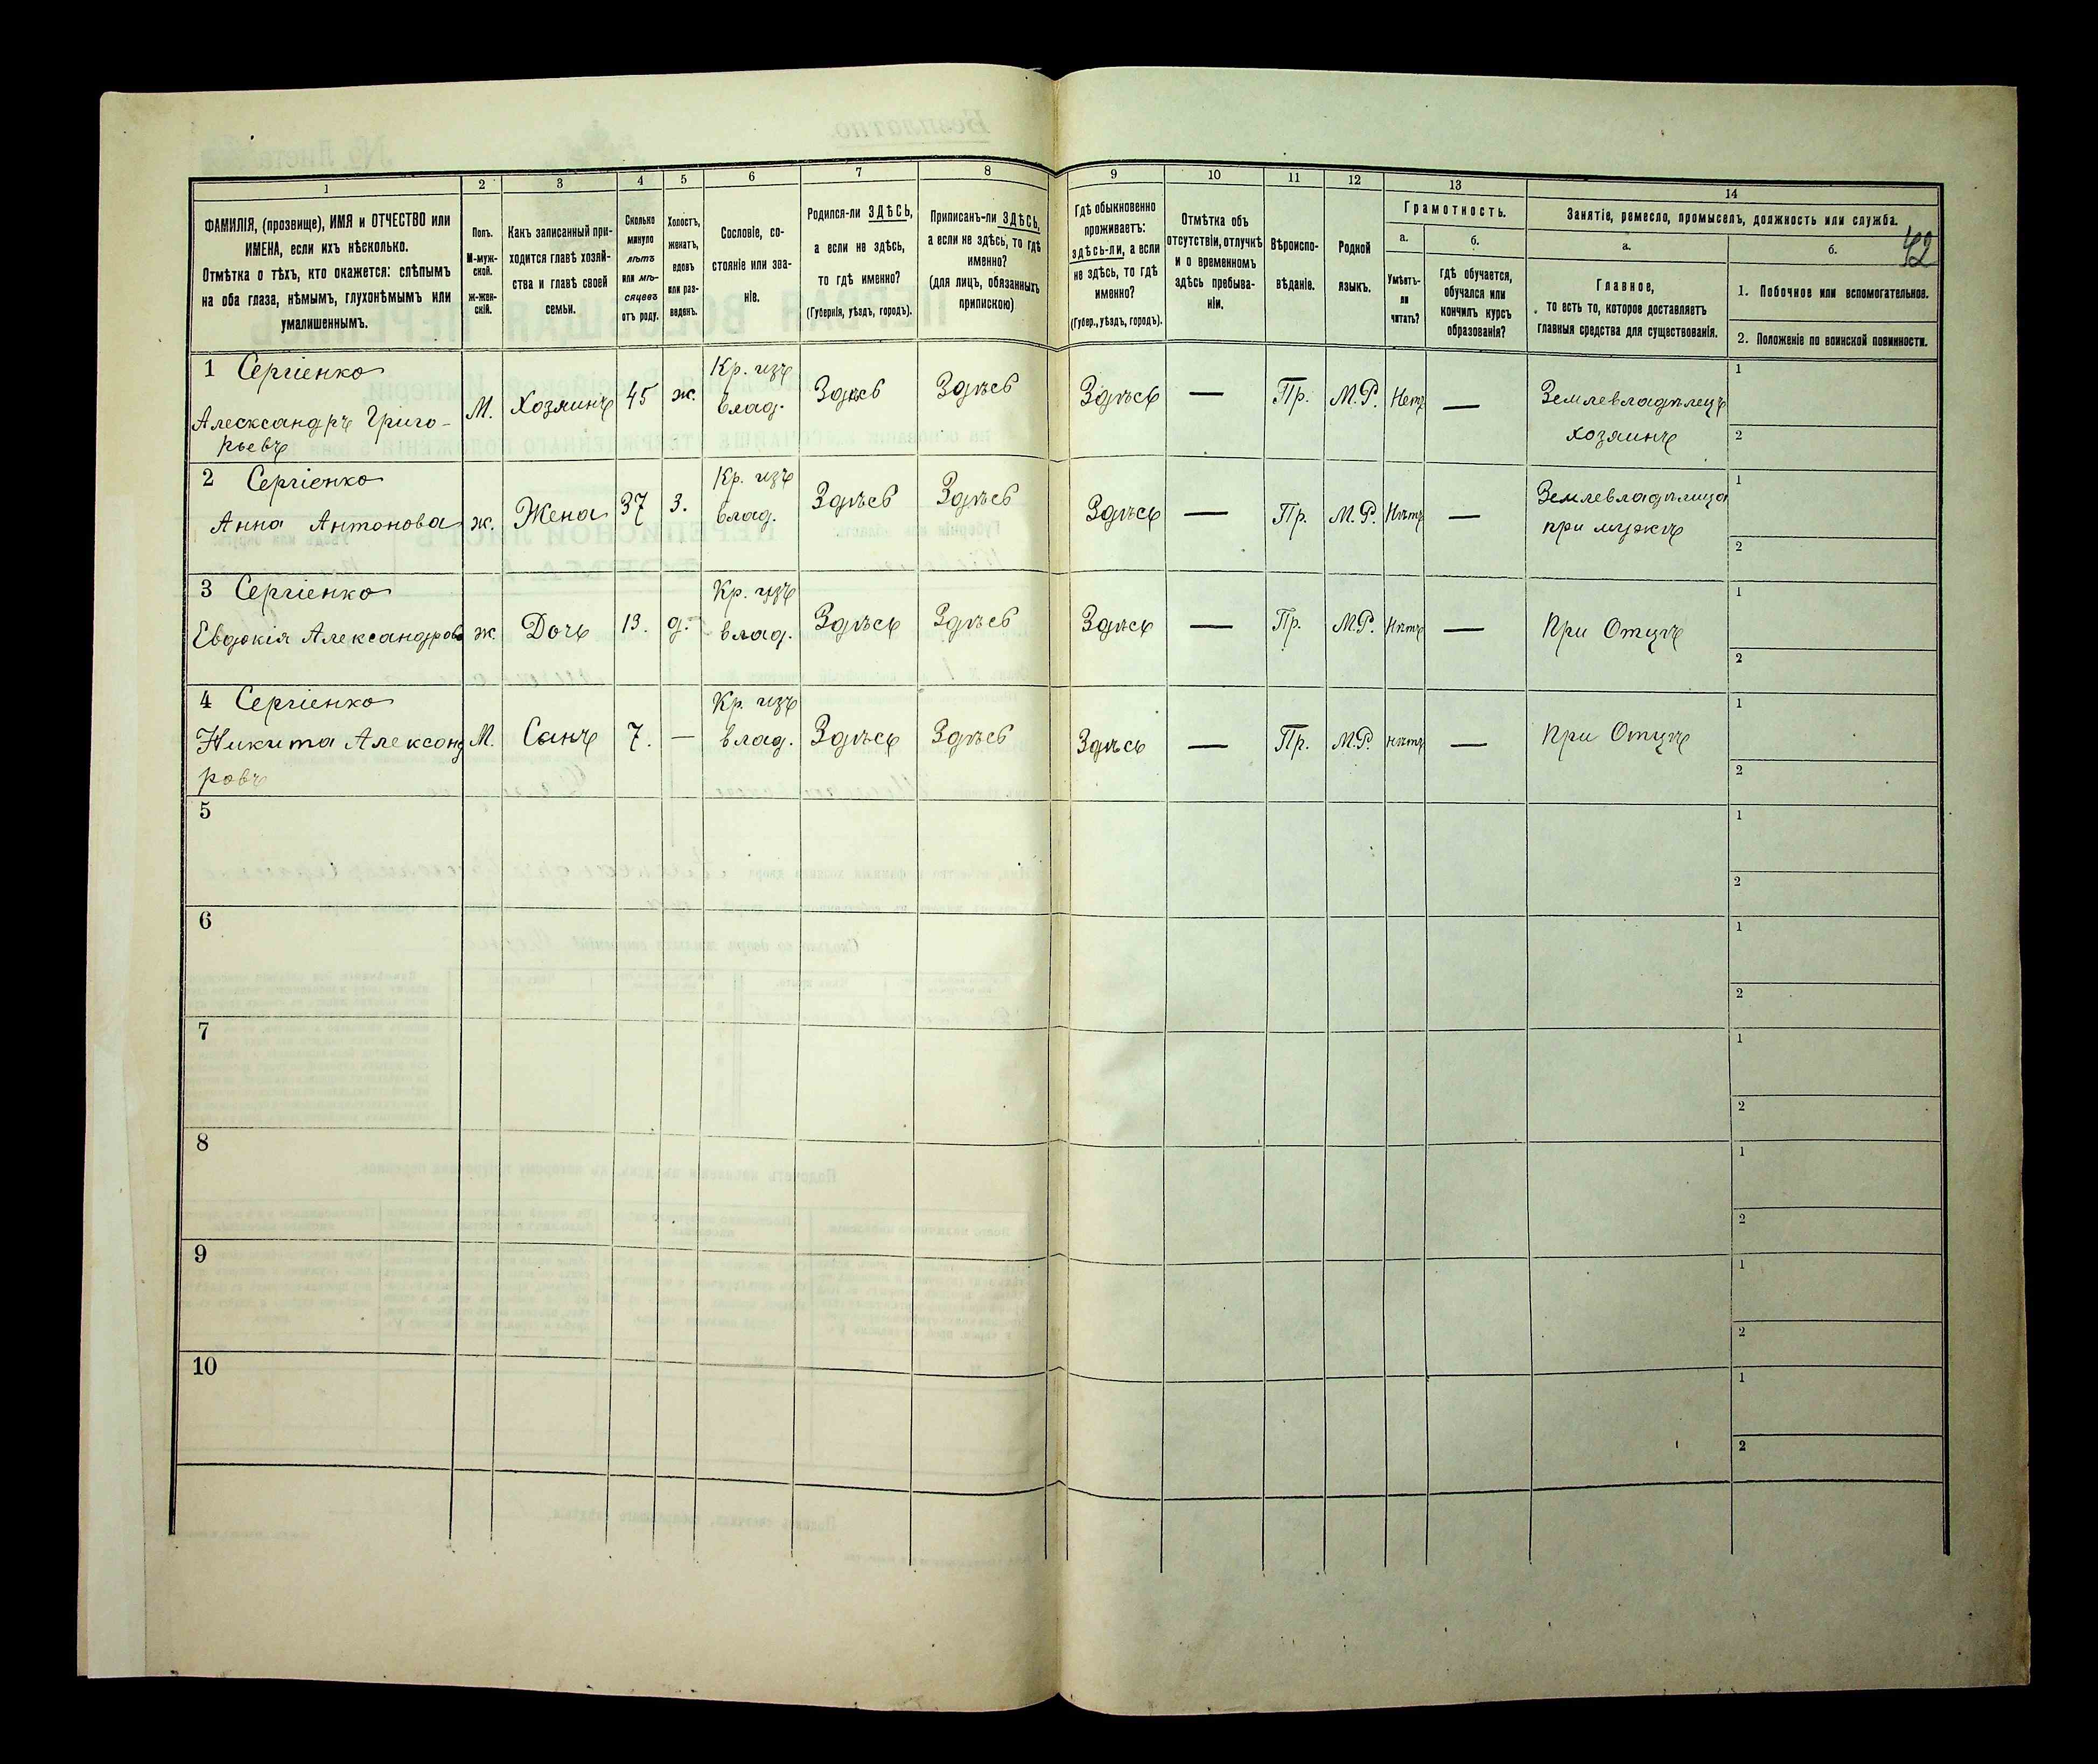 1
2
3
4
5
6
7
8
9
10
11
12
13
14
ФАМИЛІЯ, (прозвище), ИМЯ и ОТЧЕСТВО или
ИМЕНА, если ихъ нѣсколько.
Отмѣтка о тѣхъ, кто окажется: слѣпымъ
на оба глаза, нѣмымъ, глухонѣмымъ или
умалишеннымъ.
Полъ.
М-муж-
ской.
ж-жен-
скій.
Какъ записанный при-
ходится главѣ хозяй-
ства и главѣ своей
семьи.
Сколько
минуло
лѣтъ
или мѣ-
сяцевъ
отъ роду.
Холостъ,
женатъ,
вдовъ
или раз-
веденъ.
Сословіе, со-
стояніе или зва-
ніе.
Родился-ли ЗДѢСЬ,
а если не здѣсь,
то гдѣ именно?
(Губернія, уѣздъ, городъ).
Приписанъ-ли ЗДѢСЬ,
а если не здѣсь, то гдѣ
именно?
(для лицъ, обязанныхъ
припискою)
Гдѣ обыкновенно
проживаетъ:
здѣсь-ли, а если
не здѣсь, то гдѣ
именно?
(Губер., уѣздъ, городъ).
Отмѣтка объ
отсутствіи, отлучкѣ
и о временномъ
здѣсь пребыва-
ніи.
Вѣроиспо-
вѣданіе.
Родной
языкъ.
Грамотность.
а.
Умѣетъ-
ли
читать?
б.
гдѣ обучается,
обучался или
кончилъ курсъ
образованія?
Занятіе, ремесло, промыселъ, должность или служба.
42
а.
Главное,
то есть то, которое доставляетъ
главныя средства для существованія.
б.
1. Побочное или вспомогательное.
2. Положеніе по воинской повинности.
1 Сергіенко
Александръ Григо-
рьевъ
М.
Хозяинъ
45
ж.
Кр. изъ
влад.
Здѣсь
Здѣсь
Здѣсь
—
Пр.
М.Р.
Нетъ
—
Землевладѣлецъ
хозяинъ
1
2
2 Сергіенко
Анна Антонова
ж.
Жена
37
З.
Кр. изъ
влад.
Здѣсь
Здѣсь
Здѣсь
—
Пр.
М.Р.
Нѣтъ
—
Землевладѣлица
при мужѣ
1
2
3 Сергіенко
Евдокія Александрова
ж
Дочь
13.
д.
Кр. изъ
влад.
Здѣсь
Здѣсь
Здѣсь
—
Пр.
М.Р.
Нѣтъ
—
При Отцѣ
1
2
4 Сергіенко
Никита Александ
ровъ
М.
Сынъ
7.
—
Кр. изъ
влад.
Здѣсь
Здѣсь
Здѣсь
—
Пр.
М.Р.
нѣтъ
—
При Отцѣ
1
2
5
1
2
6
1
2
7
1
2
8
1
2
9
1
2
10
1
2